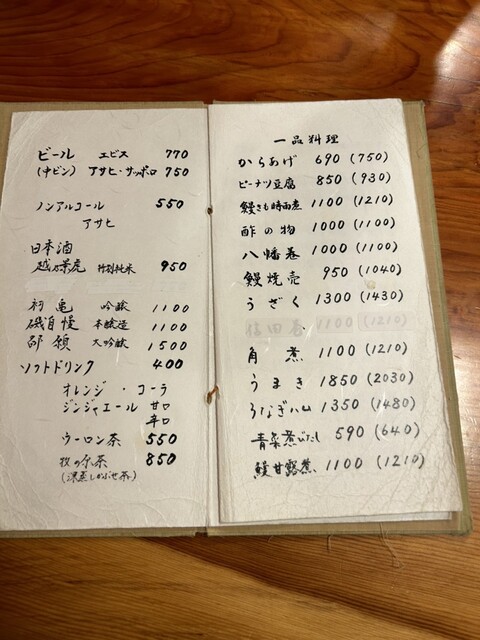 ビール エビス 770
(中ビン) アサヒ・サッポロ 750
ノンアルコール 550
アサヒ
日本酒
越乃景虎 特別純米 950
初亀 吟醸 1100
磯自慢 本醸造 1100
大吟醸 1500
ソフトドリンク 400
オレンジ・コーラ
ジンジャエール 甘口
辛口
ウーロン茶 550
牧の原茶 850
(深蒸しかぶせ茶)
一品料理
からあげ 690 (750)
ピーナツ豆腐 850 (930)
鰻きも時雨煮 1100 (1210)
酢の物 1000 (1100)
八幡巻 1000 (1100)
鰻焼売 950 (1040)
うざく 1300 (1430)
信田巻 1100 (1210)
角煮 1100 (1210)
うまき 1850 (2030)
うなぎハム 1350 (1480)
青菜煮びたし 590 (640)
鰻甘露煮 1100 (1210)